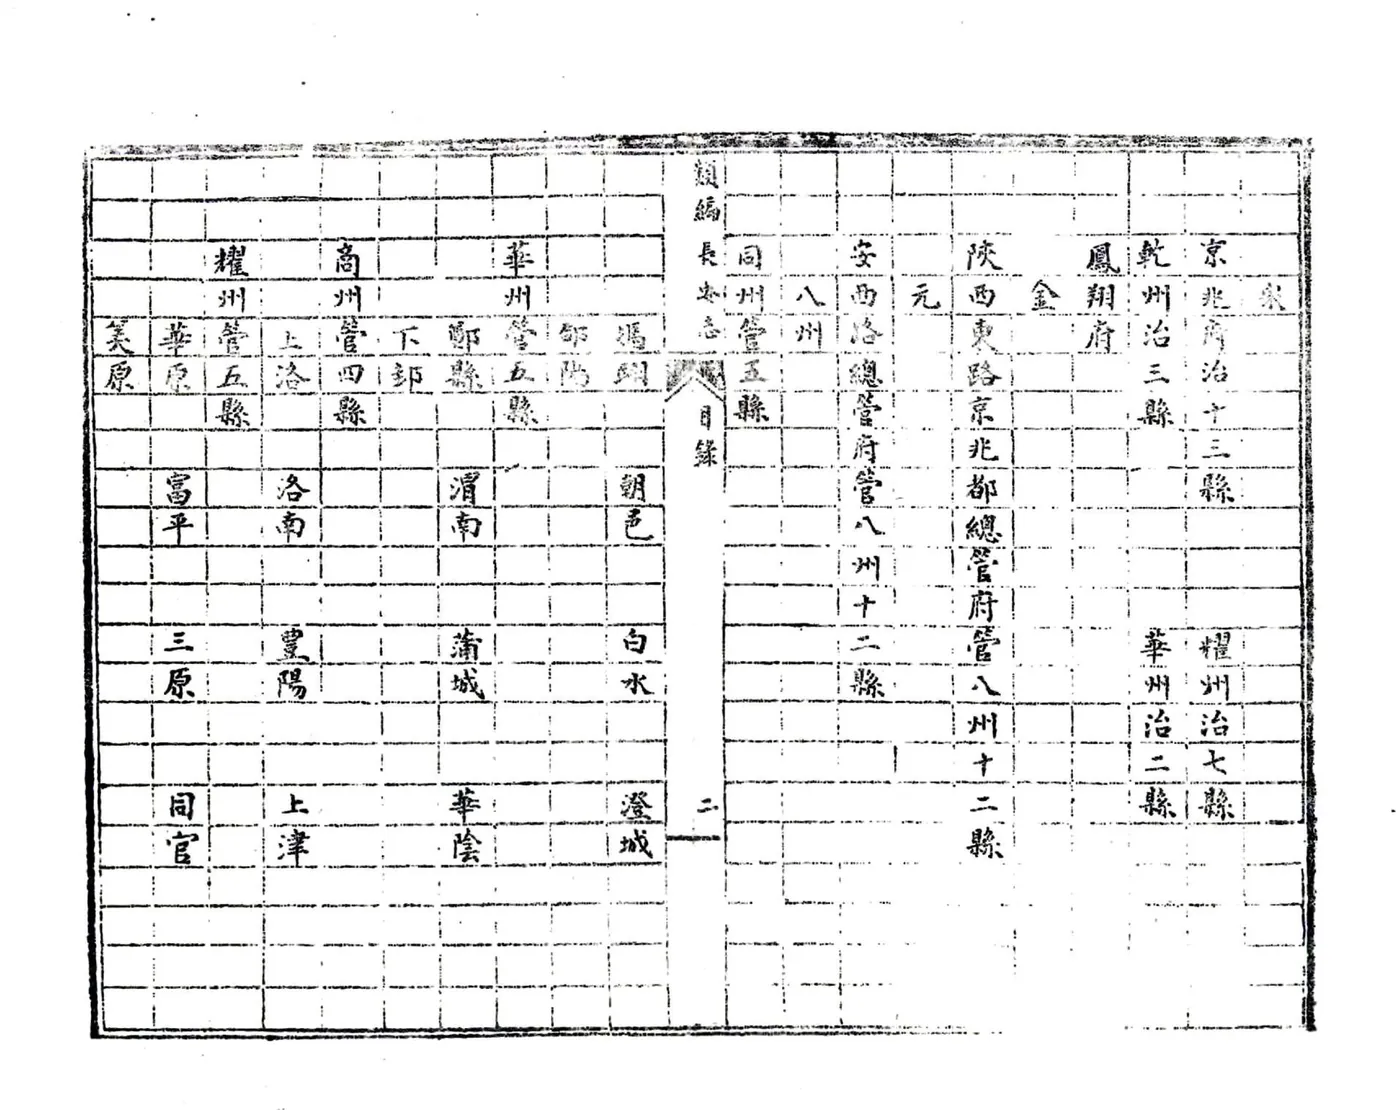 宋
京兆府治十三縣　耀州治七縣
乾州治三縣　華州治二縣
鳳翔府
金
陝西東路京兆都總管府管八州十二縣
元
安西洛總管府管八州十二縣
八州
同州管五縣
類編長安志　目錄　二
馮翊　朝邑　白水　澄城
郃陽
華州管五縣
鄭縣　渭南　蒲城　華陰
下邽
商州管四縣
上洛　洛南　豐陽　上津
耀州管五縣
華原　富平　三原　同官
美原